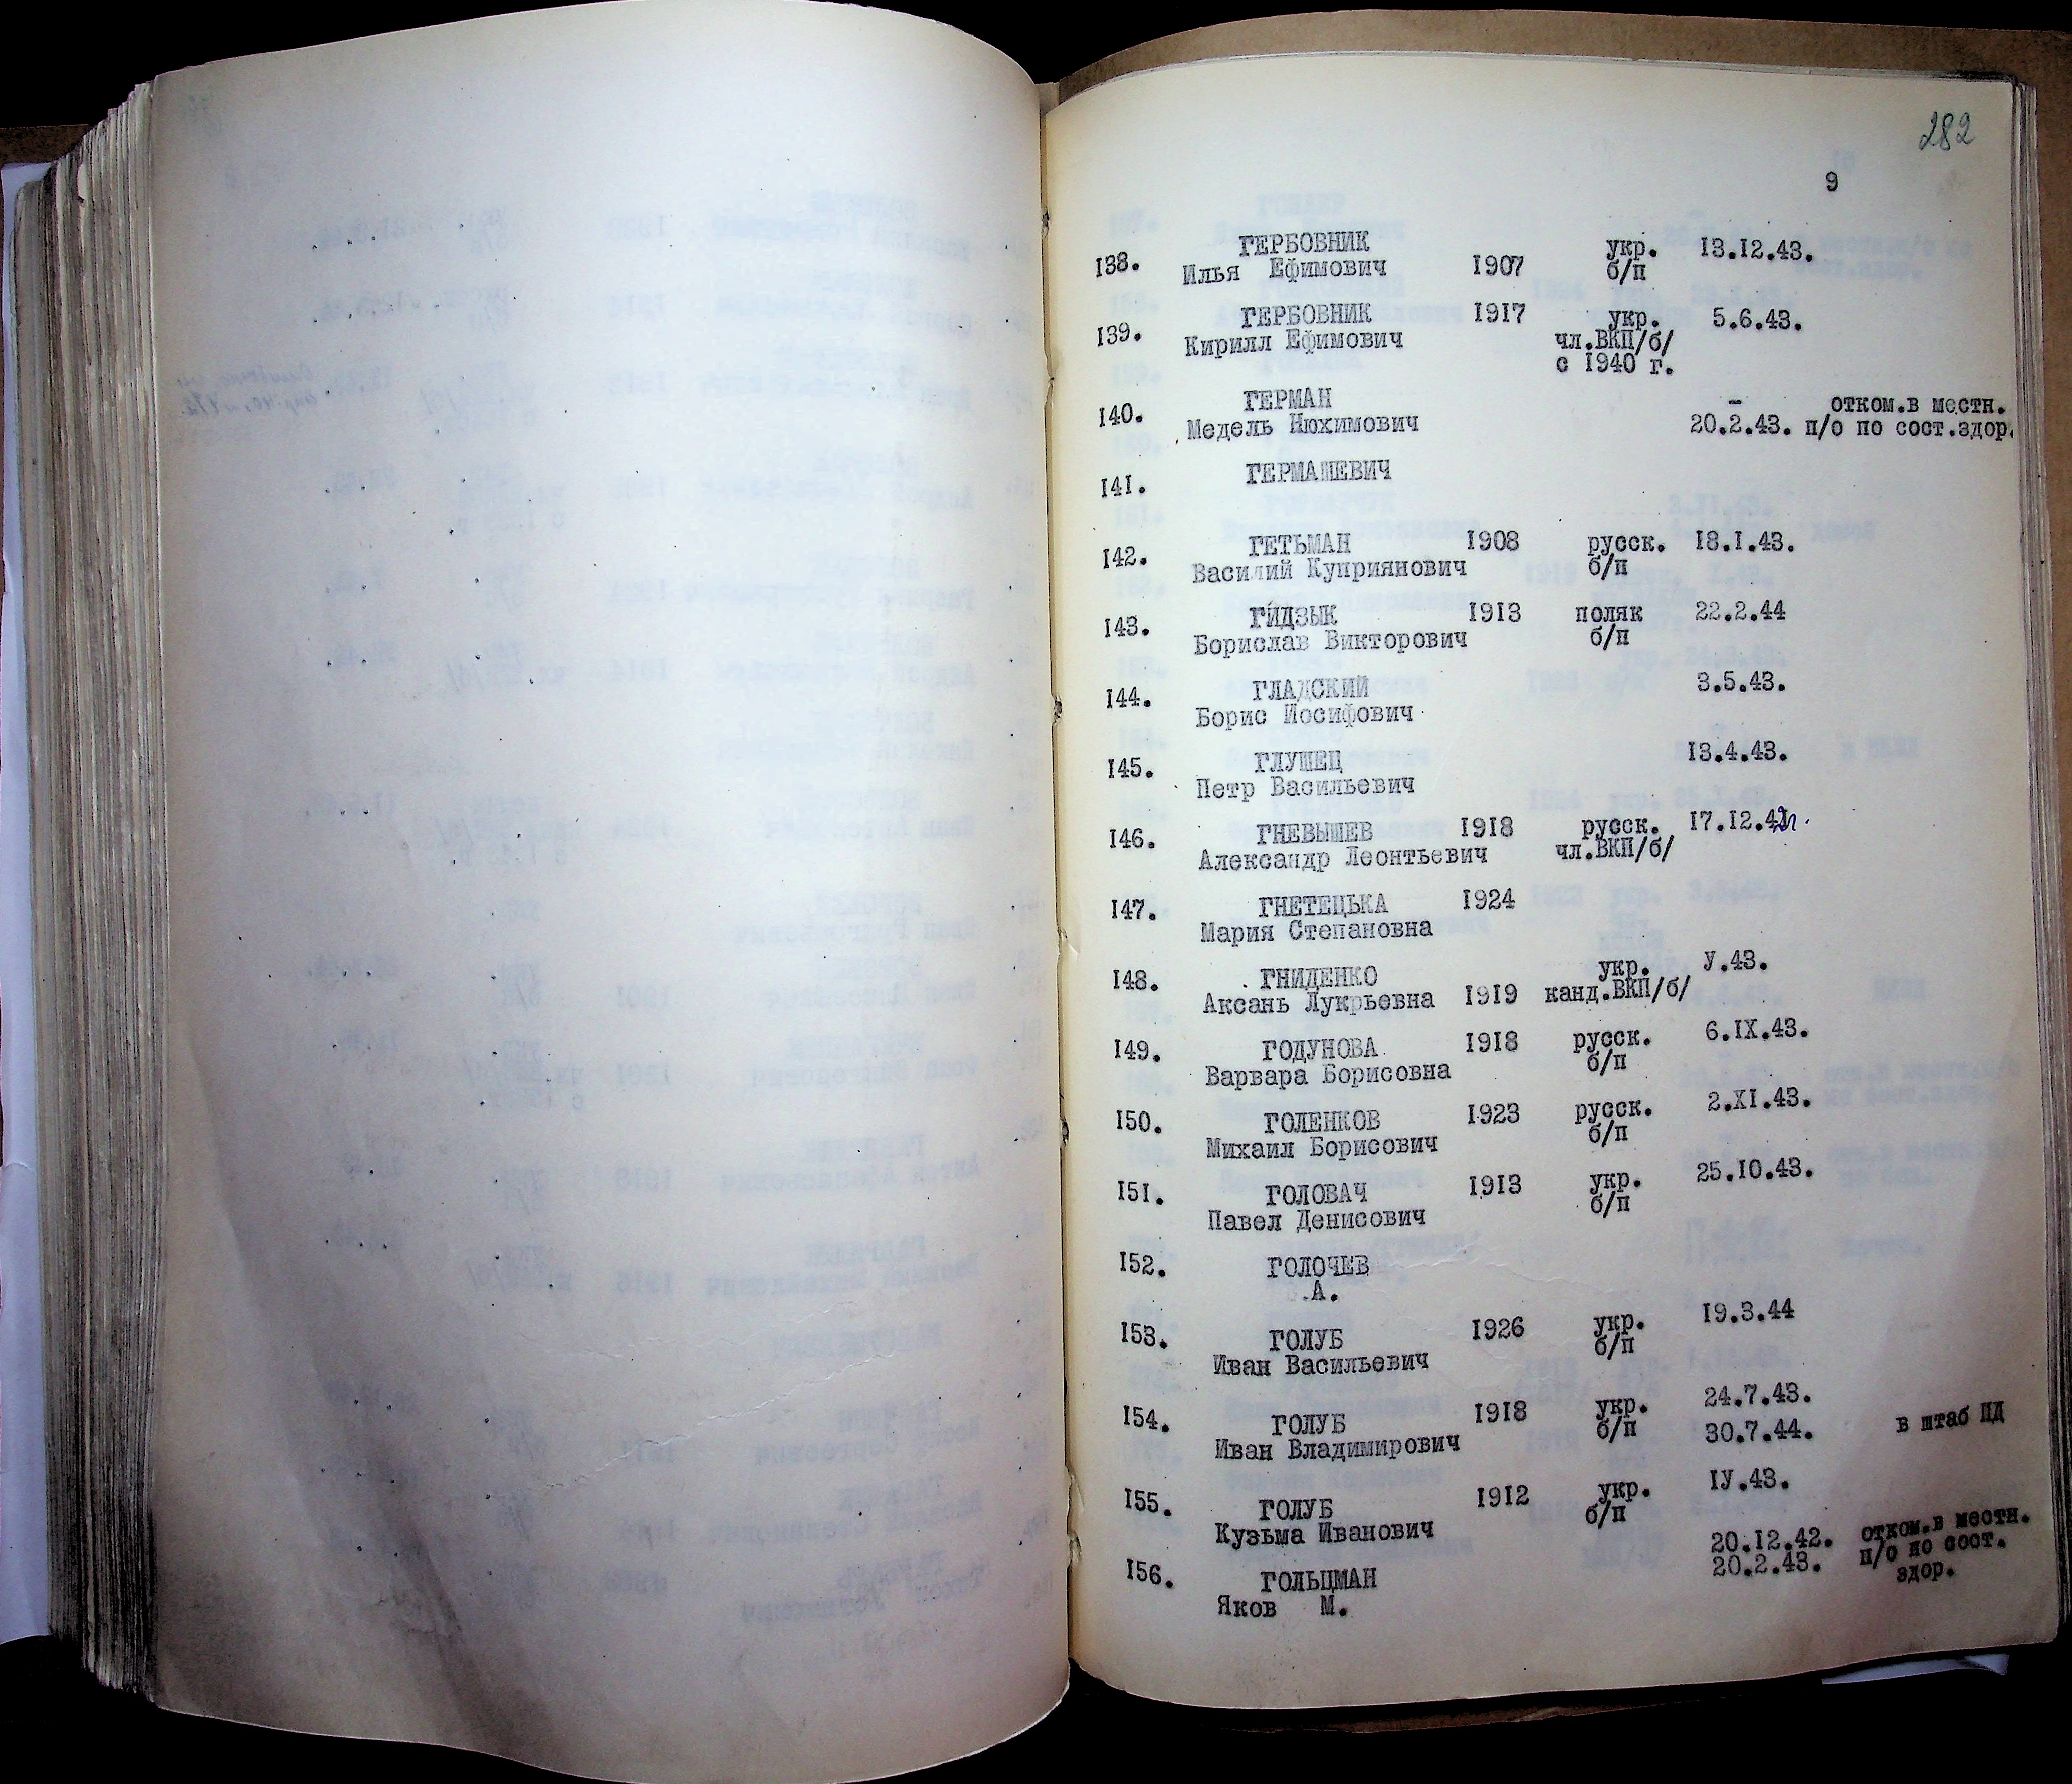 282
9
138. ГЕРБОВНИК укр. 13.12.43.
Илья Ефимович 1907 б/п
139. ГЕРБОВНИК 1917 укр. 5.6.43.
Кирилл Ефимович чл.ВКП/б/
с 1940 г.
140. ГЕРМАН – отком.в местн.
Медель Нюхимович 20.2.43. п/о по сост.здор.
141. ГЕРМАШЕВИЧ
142. ГЕТЬМАН 1908 русск. 18.I.43.
Василий Куприянович б/п
143. ГИДЗЫК 1913 поляк 22.2.44
Борислав Викторович б/п
144. ГЛАДСКИЙ 3.5.43.
Борис Иосифович
145. ГЛУШЕЦ 13.4.43.
Петр Васильевич
146. ГНЕВЫШЕВ 1918 русск. 17.12.42.
Александр Леонтьевич чл.ВКП/б/
147. ГНЕТЕЦЬКА 1924
Мария Степановна
148. ГНИДЕНКО укр. У.43.
Аксань Лукрьевна 1919 канд.ВКП/б/
149. ГОДУНОВА 1918 русск. 6.IX.43.
Варвара Борисовна б/п
150. ГОЛЕНКОВ 1923 русск. 2.XI.43.
Михаил Борисович б/п
151. ГОЛОВАЧ 1913 укр. 25.10.43.
Павел Денисович б/п
152. ГОЛОЧЕВ
А.
153. ГОЛУБ 1926 укр. 19.3.44
Иван Васильевич б/п
154. ГОЛУБ 1918 укр. 24.7.43.
Иван Владимирович б/п 30.7.44. в штаб ПД
155. ГОЛУБ 1912 укр. IУ.43.
Кузьма Иванович б/п
156. ГОЛЬЦМАН 20.12.42. отком.в местн.
Яков М. 20.2.43. п/о по сост.
здор.